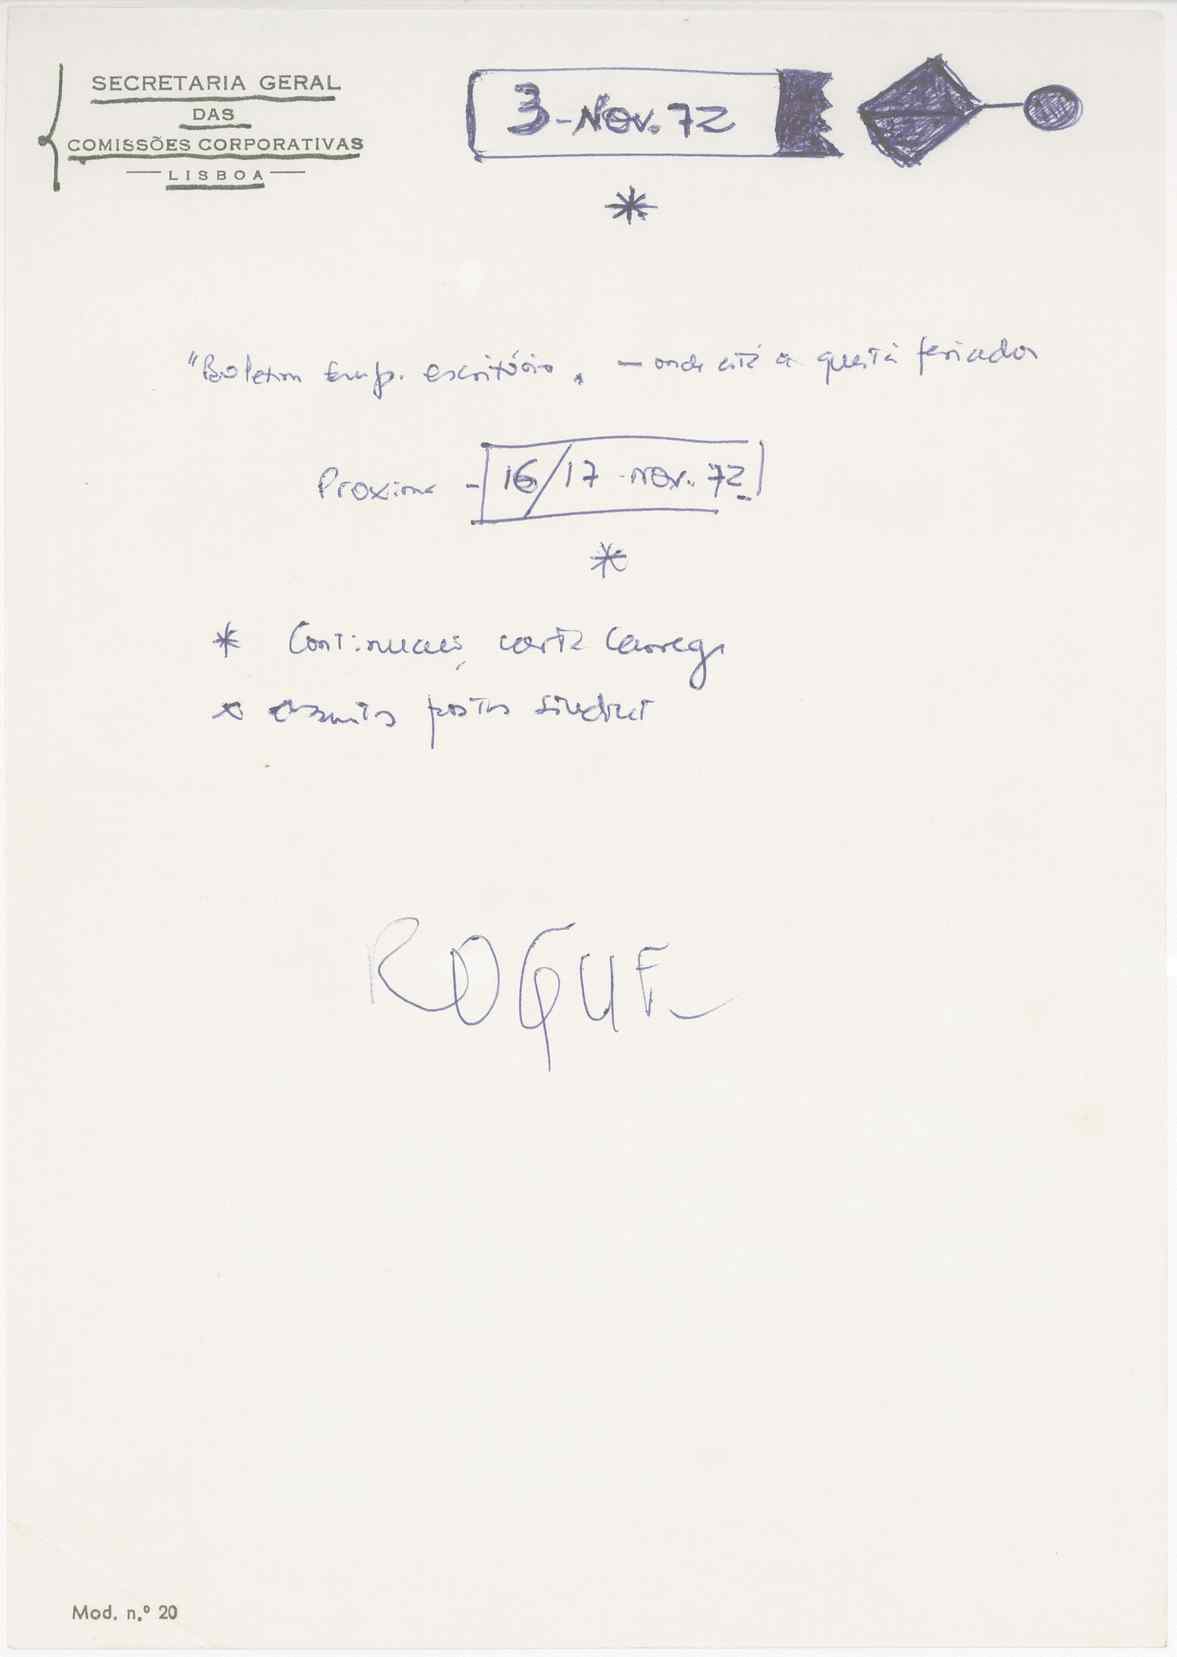 SECRETARIA GERAL
DAS
COMISSÕES CORPORATIVAS
LISBOA
3-Nov. 72
*
"Boletim emp. escritório" — onde está a questão feriados
Proxima - 16/17 nov. 72
*
* Continuação carta
* assuntos postos
ROQUE
Mod. n.º 20